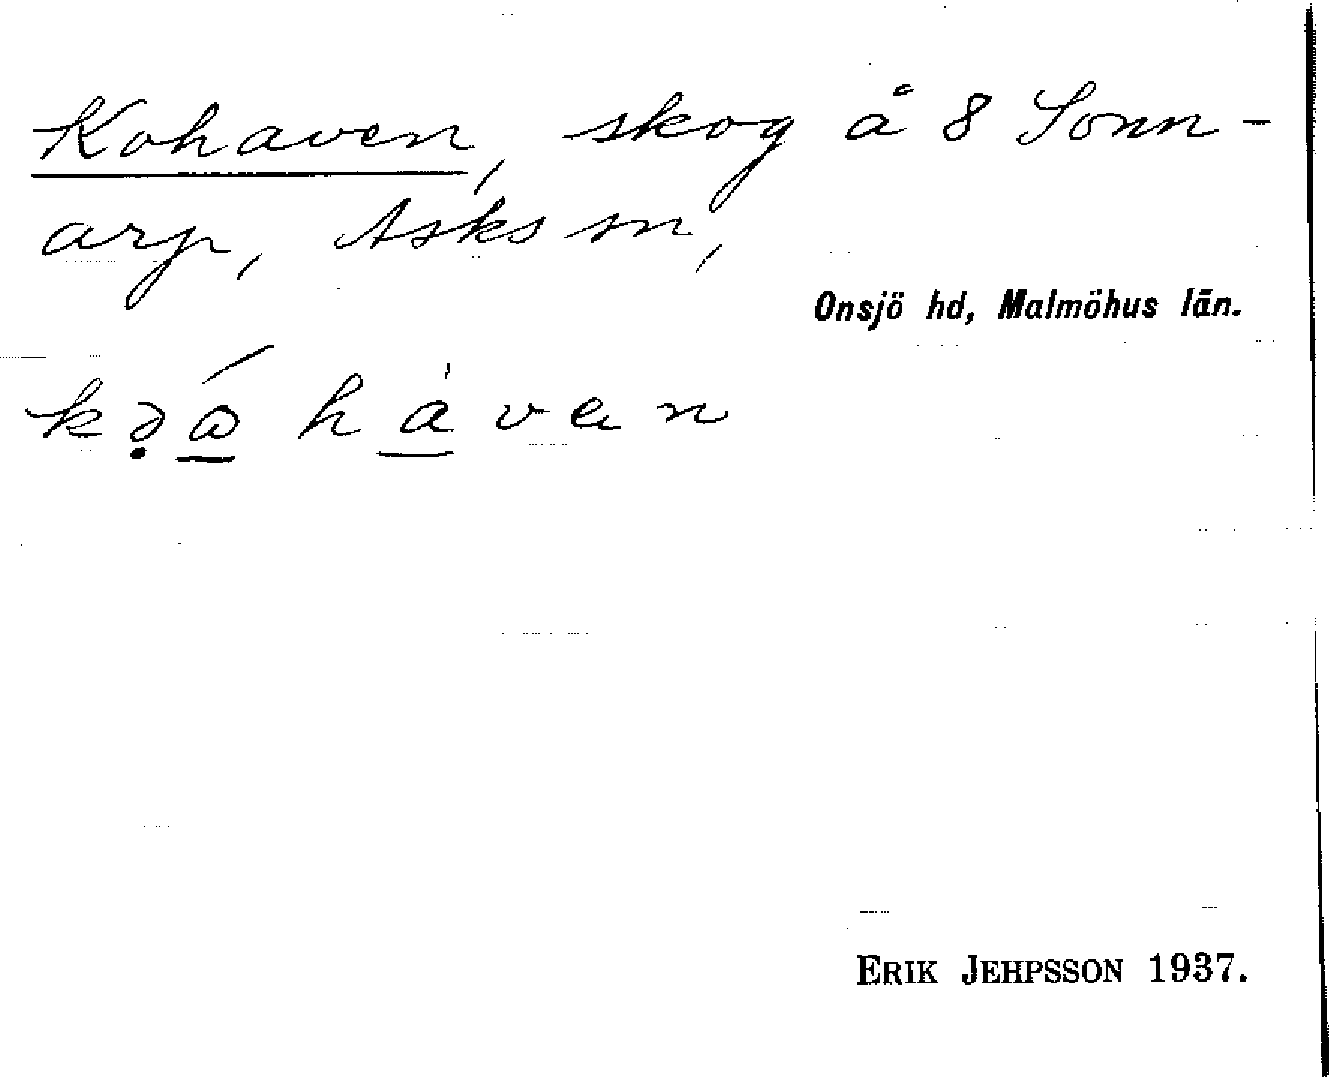 Kohaven, skog å 8 Sonn-
arp, Asks sn,
Onsjö hd, Malmöhus län.
kə̣ώ̱ hα̱̍ven
ERIK JEHPSSON 1937.